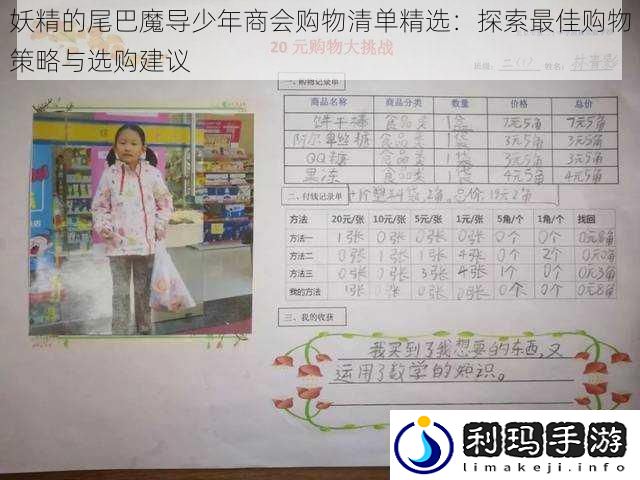 妖精的尾巴魔导少年商会购物清单精选：探索最佳购物
策略与选购建议
20 元购物大挑战
班级：二(1) 姓名：
一、购物记录单
商品名称 商品分类 数量 价格 总价
饼干 食品类 1袋 7元5角 7元5角
阿尔卑丝糖 食品类 1袋 3元5角 3元5角
QQ糖 食品类 1袋 3元5角 3元5角
食品类 1袋 4元5角 4元5角
二、付钱记录单 十个塑料袋2角，总价19元2角
方法 20元/张 10元/张 5元/张 1元/张 5角/个 1角/个 找回
方法一 1张 0张 0张 0张 0个 0个 0元8角
方法二 0张 1张 1张 4张 0个 2个 0元0角
方法三 0张 0张 3张 4张 1个 0个 0元3角
我的方法 1张 0张 0张 0张 0个 0个 0元8角
三、我的收获
我买到了我想要的东西，又
运用了数学的知识。
利玛手游
limakeji.info